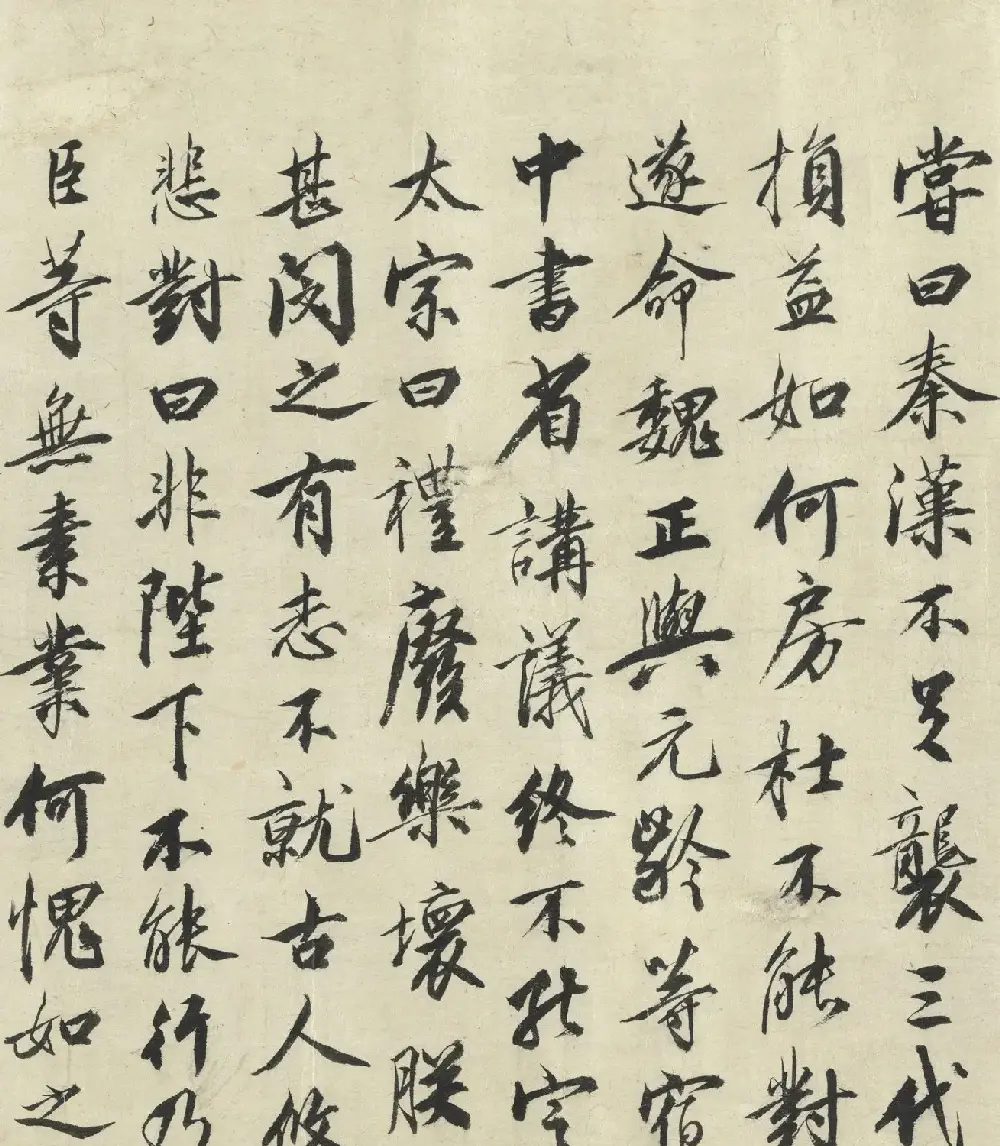 嘗曰秦漢不足襲三代
損益如何房杜不能對
遂命魏正與元齡等宿
中書省講議終不能定
太宗曰禮廢樂壞朕
甚閔之有志不就古人攸
悲對曰非陛下不能行乃
臣等無素業何愧如之